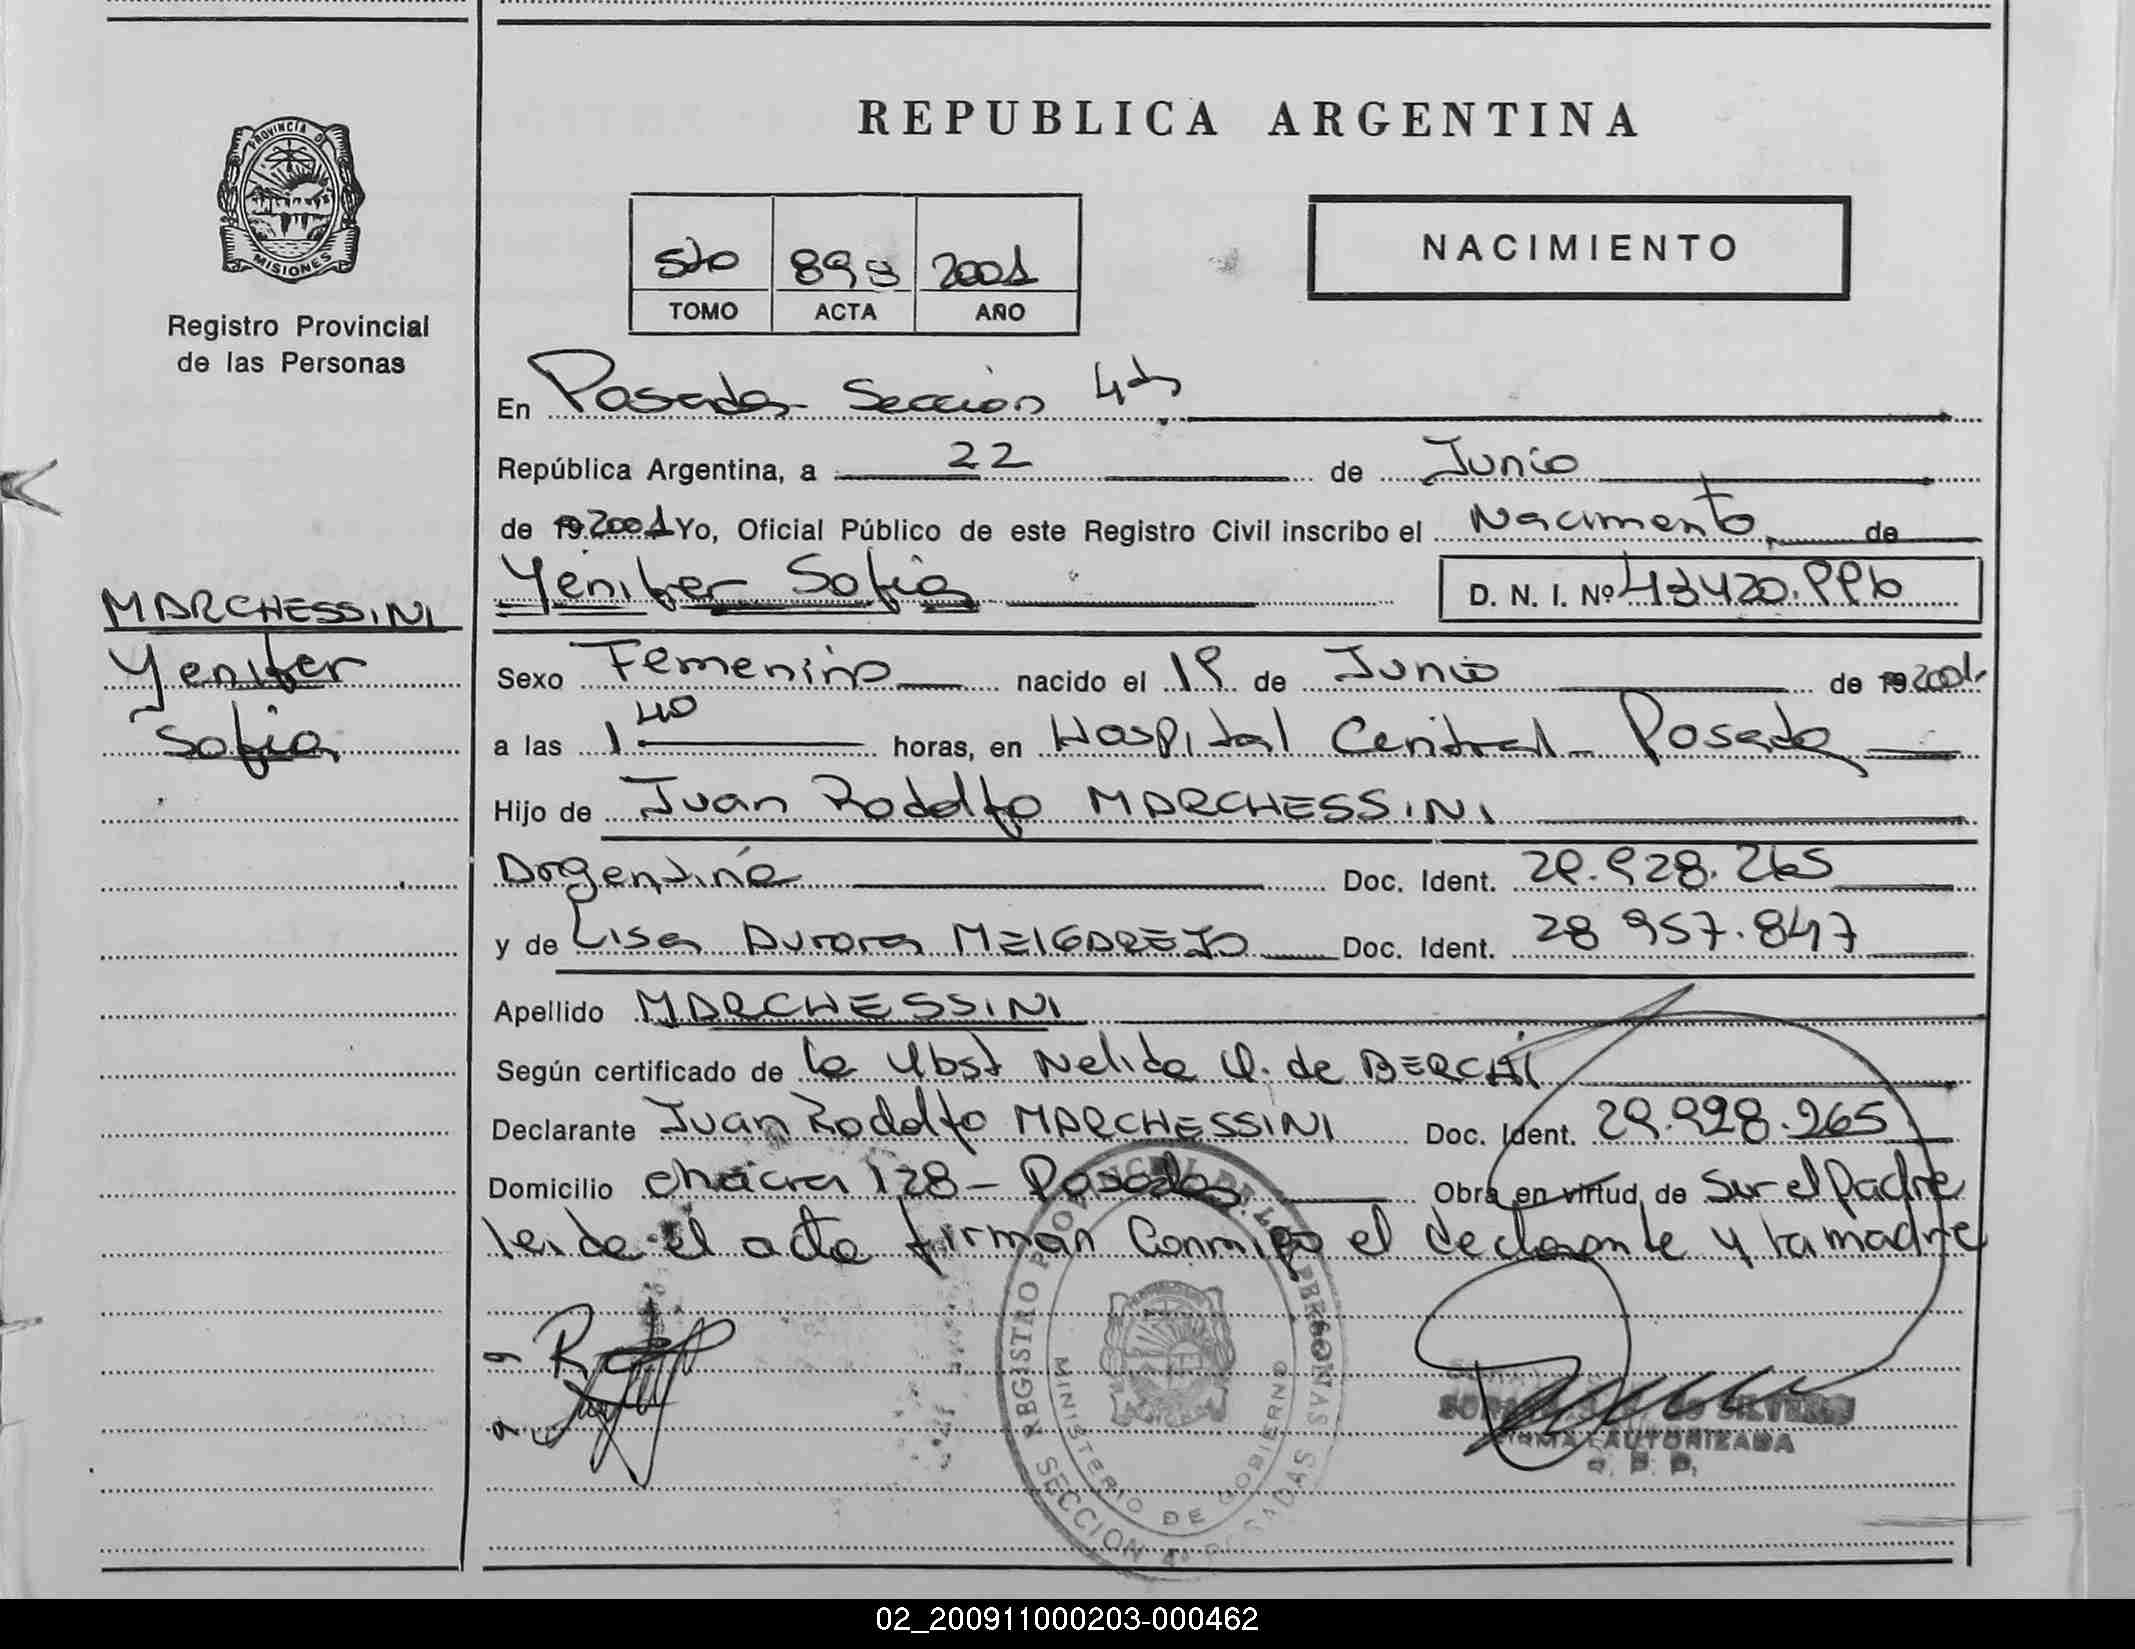 REPUBLICA ARGENTINA
PROVINCIA DE
MISIONES
Registro Provincial
de las Personas
5to 899 2001
TOMO ACTA AÑO
NACIMIENTO
En Posadas Sección 4ta
República Argentina, a 22 de Junio
de 19 2001 Yo, Oficial Público de este Registro Civil inscribo el Nacimiento de
Yenifer Sofia D. N. I. Nº
MARCHESSINI
Yenifer
Sofia
Sexo Femenino nacido el 19 de Junio de 19 2001
a las 1 40 horas, en Hospital Central Posadas
Hijo de Juan Rodolfo MARCHESSINI
Argentina Doc. Ident. 29.928.265
y de Lisa Aurora MELGAREJO Doc. Ident. 28 957.847
Apellido MARCHESSINI
Según certificado de la Obst Nelida de
Declarante Juan Rodolfo MARCHESSINI Doc. Ident. 29.928.265
Domicilio Chacra 128 - Posadas Obra en virtud de Ser el Padre
leida el acta firman Conmigo el declarante y la madre
REGISTRO PROVINCIAL DE LAS PERSONAS
MINISTERIO DE GOBIERNO
SECCION 4ª POSADAS
FIRMA AUTORIZADA
02_200911000203-000462